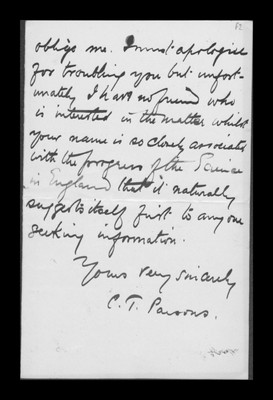 82
oblige me. I must apologise
for troubling you but unfort-
unately I have no friend who
is interested in the matter whilst
your name is so closely associated
with the progress of the Science
in England that it naturally
suggests itself first to any one
seeking information.
Yours very sincerely
C. T. Parsons.